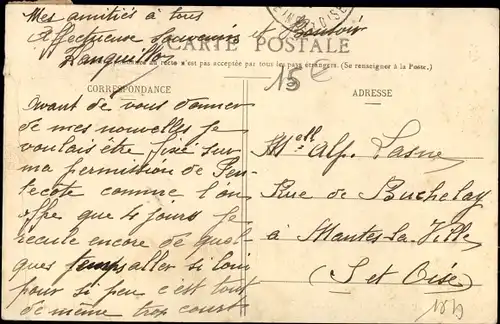 Mes amitiés à tous
Affectueux Souvenirs et
CARTE POSTALE
recto n'est pas acceptée par tous les pays étrangers. (Se renseigner à la Poste.)
15€
CORRESPONDANCE
Avant de vous donner
de mes nouvelles je
voulais être fixé sur
ma permission de Pen-
tecote comme l'on
offre que 4 jours je
recule encore de quel-
ques temps aller si loin
pour si peu c'est tout
de même trop court
ADRESSE
Alp. Lasne
Rue de Buchelay
à Mantes-la-Ville
(S et Oise)